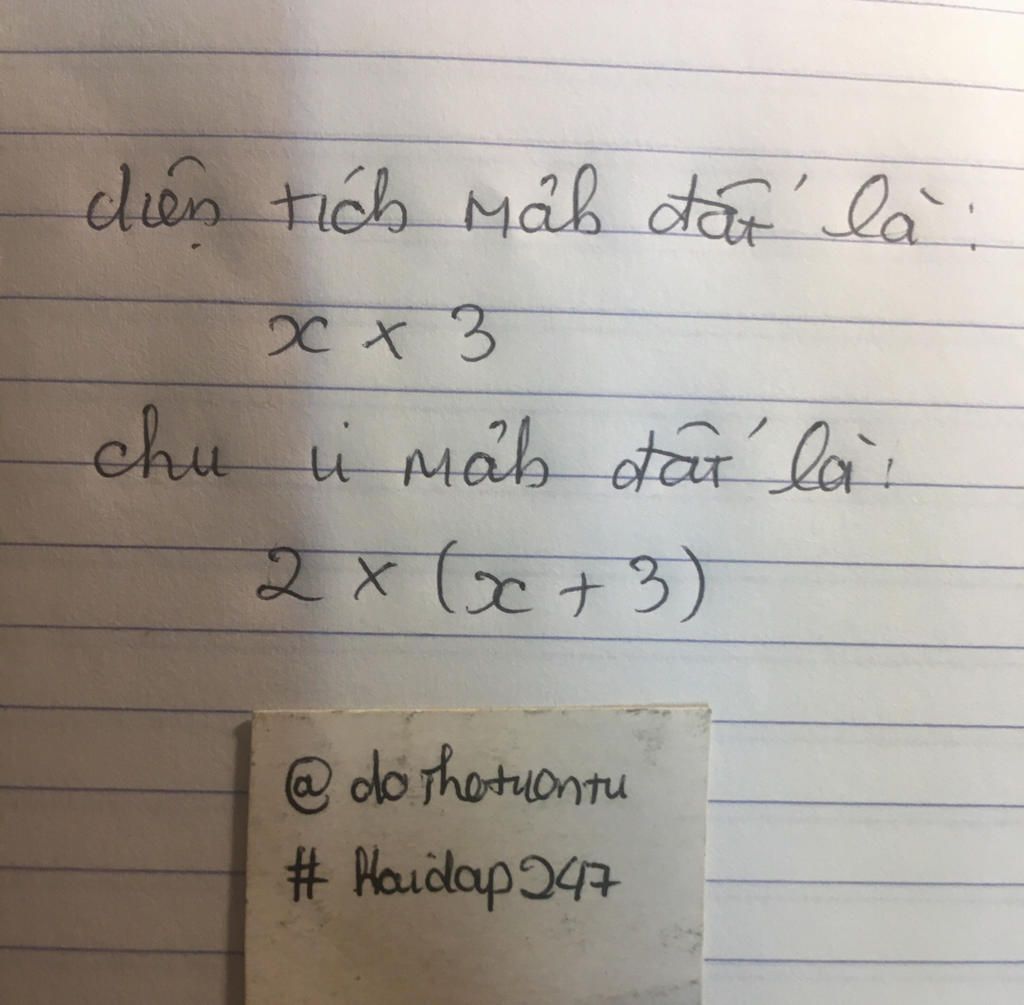 diện tích mảh đất là:
x × 3
chu vi mảh đất là:
2 × (x + 3)
@dothetuontu
# Hoidap247